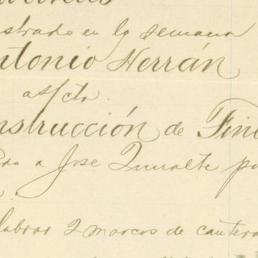 strado en la semana
ntonio Herrán
as/cta.
nstrucción de Fin
do a José Zumalte po
labrar 2 marcos de cantera